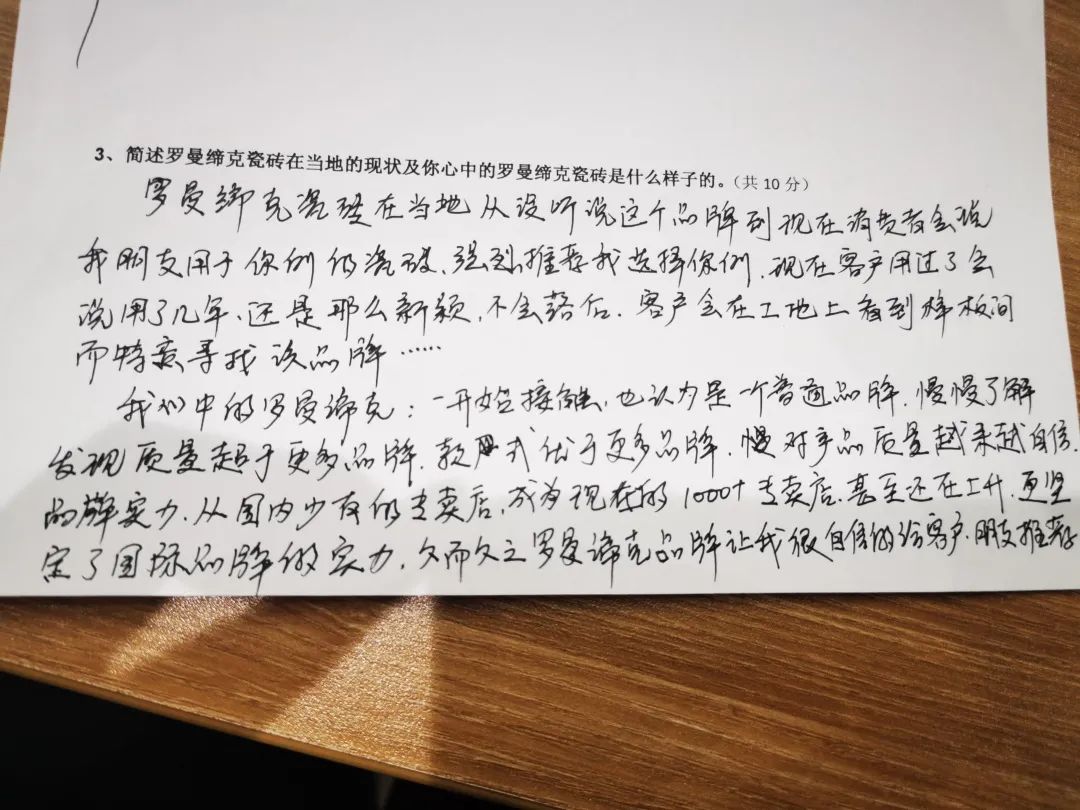 3、简述罗曼缔克瓷砖在当地的现状及你心中的罗曼缔克瓷砖是什么样子的。（共 10 分）
罗曼缔克瓷砖在当地从没听说这个品牌到现在消费者会说
我朋友用于你们的瓷砖、强烈推荐我选择你们，现在客户用过了会
说用了几年、还是那么新颖，不会落后．客户会在工地上看到样板间
而特意寻找该品牌……
我们中的罗曼缔克：一开始接触，也认为是一个普通品牌．慢慢了解
发现质量超于更多品牌．款式优于更多品牌．慢对产品质量越来越自信．
品牌实力．从国内少有的专卖店，成为现在的1000+专卖店．甚至还在上升．更坚
定了国际品牌的实力．久而久之罗曼缔克品牌让我很自信的给客户．朋友推荐